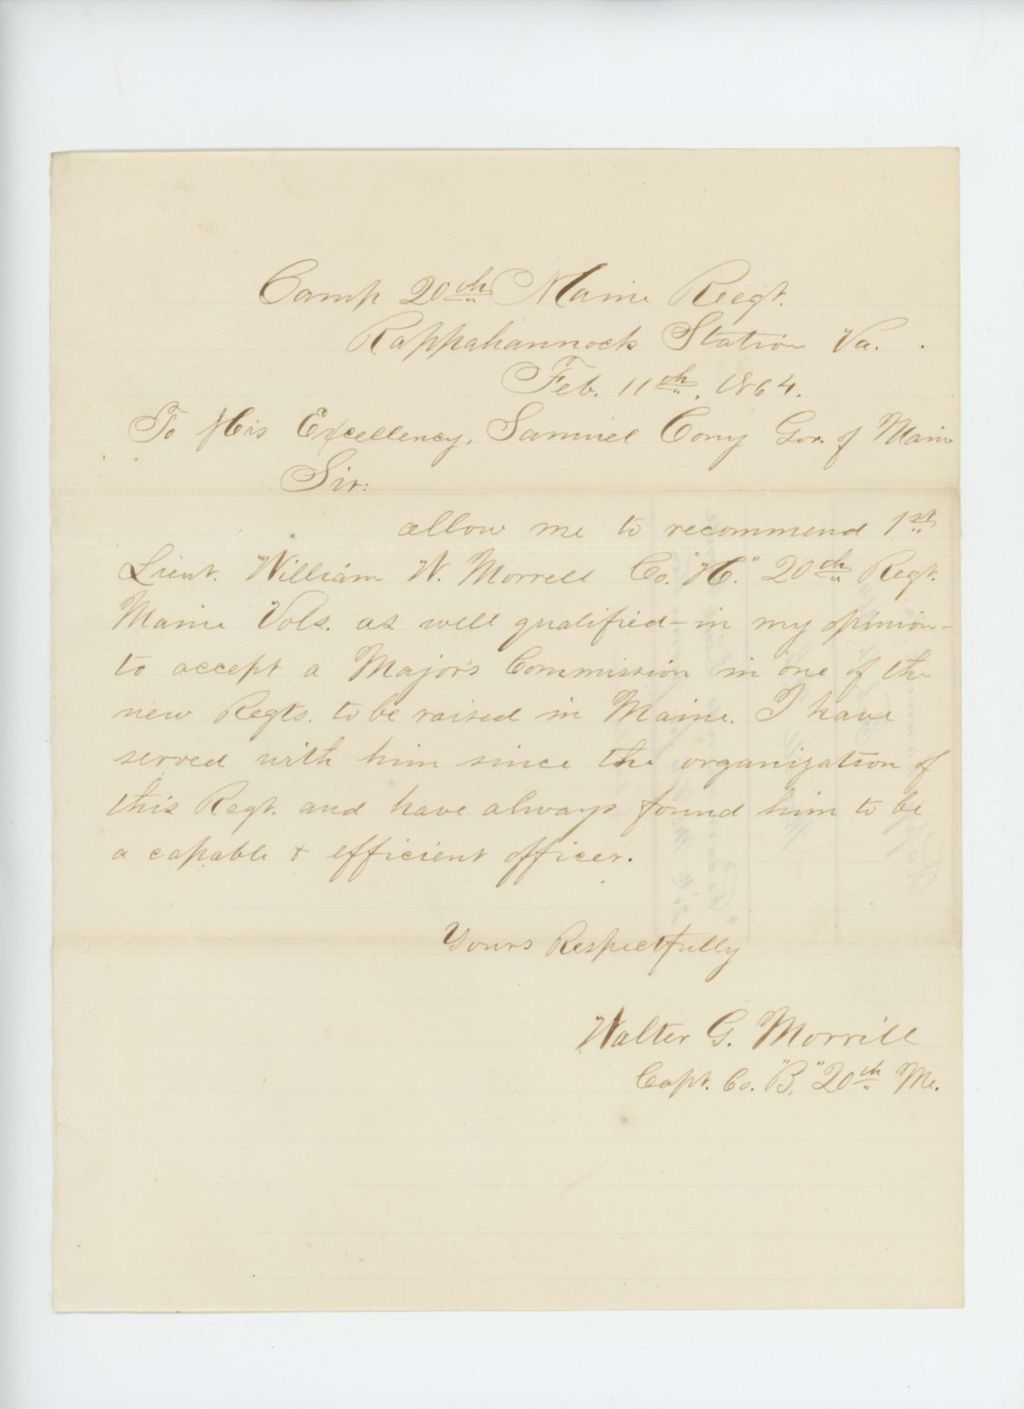 Camp 20th Maine Regt.
Rappahannock Station Va.
Feb. 11th, 1864.
To His Excellency, Samuel Cony Gov. of Maine
Sir:
allow me to recommend 1st
Lieut. William W. Morrell Co. "H." 20th Regt.
Maine Vols. as well qualified – in my opinion –
to accept a Major's Commission in one of the
new Regts. to be raised in Maine. I have
served with him since the organization of
this Regt. and have always found him to be
a capable & efficient officer.
Yours Respectfully
Walter G. Morrill
Capt. Co. "B," 20th Me.